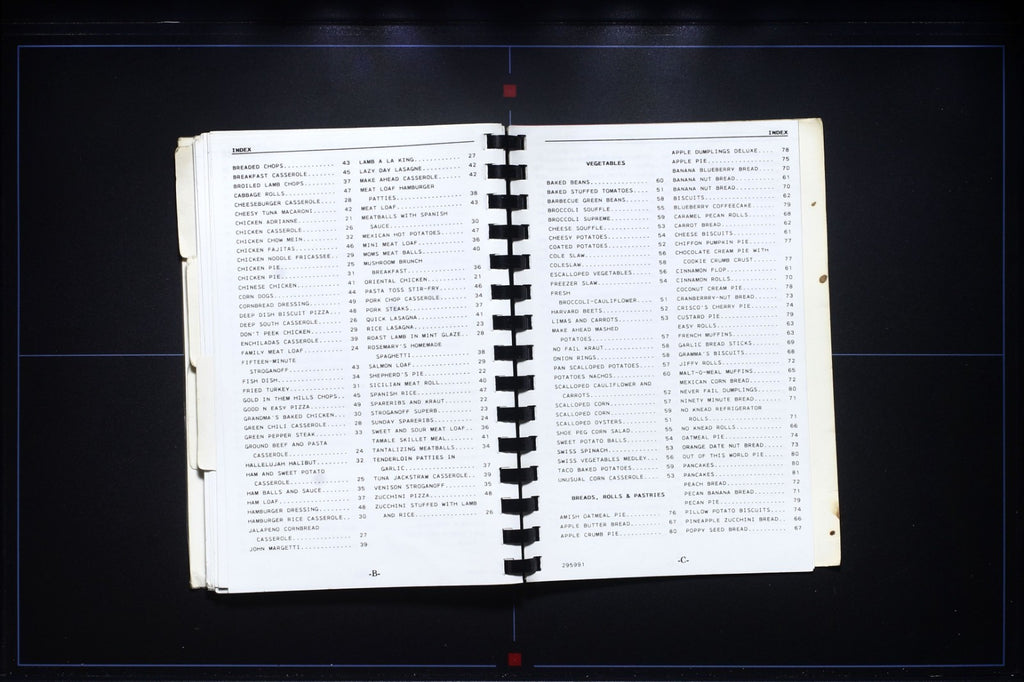 INDEX
BREADED CHOPS............. 43
BREAKFAST CASSEROLE....... 45
BROILED LAMB CHOPS........ 37
CABBAGE ROLLS............. 47
CHEESEBURGER CASSEROLE.... 28
CHEESY TUNA MACARONI...... 42
CHICKEN ADRIANNE.......... 21
CHICKEN CASSEROLE......... 26
CHICKEN CHOW MEIN......... 32
CHICKEN FAJITAS........... 46
CHICKEN NOODLE FRICASSEE.. 29
CHICKEN PIE............... 25
CHICKEN PIE............... 31
CHINESE CHICKEN........... 41
CORN DOGS................. 44
CORNBREAD DRESSING........ 49
DEEP DISH BISCUIT PIZZA... 48
DEEP SOUTH CASSEROLE...... 26
DON'T PEEK CHICKEN........ 29
ENCHILADAS CASSEROLE...... 39
FAMILY MEAT LOAF.......... 24
FIFTEEN-MINUTE
STROGANOFF............. 43
FISH DISH................. 34
FRIED TURKEY.............. 31
GOLD IN THEM HILLS CHOPS.. 45
GOOD N EASY PIZZA......... 49
GRANDMA'S BAKED CHICKEN... 30
GREEN CHILI CASSEROLE..... 28
GREEN PEPPER STEAK........ 33
GROUND BEEF AND PASTA
CASSEROLE.............. 24
HALLELUJAH HALIBUT........ 32
HAM AND SWEET POTATO
CASSEROLE.............. 25
HAM BALLS AND SAUCE....... 35
HAM LOAF.................. 37
HAMBURGER DRESSING........ 48
HAMBURGER RICE CASSEROLE.. 30
JALAPENO CORNBREAD
CASSEROLE.............. 27
JOHN MARGETTI............. 39
LAMB A LA KING............ 27
LAZY DAY LASAGNE.......... 42
MAKE AHEAD CASSEROLE...... 42
MEAT LOAF HAMBURGER
PATTIES................ 38
MEAT LOAF................. 43
MEATBALLS WITH SPANISH
SAUCE.................. 30
MEXICAN HOT POTATOES...... 47
MINI MEAT LOAF............ 36
MOMS MEAT BALLS........... 40
MUSHROOM BRUNCH
BREAKFAST.............. 36
ORIENTAL CHICKEN.......... 21
PASTA TOSS STIR-FRY....... 46
PORK CHOP CASSEROLE....... 34
PORK STEAKS............... 37
QUICK LASAGNA............. 41
RICE LASAGNA.............. 23
ROAST LAMB IN MINT GLAZE.. 28
ROSEMARY'S HOMEMADE
SPAGHETTI.............. 38
SALMON LOAF............... 29
SHEPHERD'S PIE............ 22
SICILIAN MEAT ROLL........ 40
SPANISH RICE.............. 47
SPARERIBS AND KRAUT....... 22
STROGANOFF SUPERB......... 23
SUNDAY SPARERIBS.......... 24
SWEET AND SOUR MEAT LOAF.. 36
TAMALE SKILLET MEAL....... 41
TANTALIZING MEATBALLS..... 34
TENDERLOIN PATTIES IN
GARLIC................. 37
TUNA JACKSTRAW CASSEROLE.. 39
VENISON STROGANOFF........ 35
ZUCCHINI PIZZA............ 48
ZUCCHINI STUFFED WITH LAMB
AND RICE............... 26
-B-
INDEX
VEGETABLES
BAKED BEANS............... 60
BAKED STUFFED TOMATOES.... 51
BARBECUE GREEN BEANS...... 58
BROCCOLI SOUFFLE.......... 55
BROCCOLI SUPREME.......... 59
CHEESE SOUFFLE............ 53
CHEESY POTATOES........... 54
COATED POTATOES........... 52
COLE SLAW................. 56
COLESLAW.................. 58
ESCALLOPED VEGETABLES..... 56
FREEZER SLAW.............. 54
FRESH
BROCCOLI-CAULIFLOWER... 51
HARVARD BEETS............. 52
LIMAS AND CARROTS......... 53
MAKE AHEAD MASHED
POTATOES............... 57
NO FAIL KRAUT............. 58
ONION RINGS............... 58
PAN SCALLOPED POTATOES.... 57
POTATOES NACHOS........... 60
SCALLOPED CAULIFLOWER AND
CARROTS................ 52
SCALLOPED CORN............ 57
SCALLOPED CORN............ 59
SCALLOPED OYSTERS......... 51
SHOE PEG CORN SALAD....... 55
SWEET POTATO BALLS........ 54
SWISS SPINACH............. 53
SWISS VEGETABLES MEDLEY... 56
TACO BAKED POTATOES....... 59
UNUSUAL CORN CASSEROLE.... 53
BREADS, ROLLS & PASTRIES
AMISH OATMEAL PIE......... 76
APPLE BUTTER BREAD........ 67
APPLE CRUMB PIE........... 80
295991
APPLE DUMPLINGS DELUXE.... 78
APPLE PIE................. 75
BANANA BLUEBERRY BREAD.... 70
BANANA NUT BREAD.......... 61
BANANA NUT BREAD.......... 70
BISCUITS.................. 62
BLUEBERRY COFFEECAKE...... 79
CARAMEL PECAN ROLLS....... 68
CARROT BREAD.............. 62
CHEESE BISCUITS........... 61
CHIFFON PUMPKIN PIE....... 77
CHOCOLATE CREAM PIE WITH
COOKIE CRUMB CRUST..... 77
CINNAMON FLOP............. 61
CINNAMON ROLLS............ 70
COCONUT CREAM PIE......... 78
CRANBERRRY-NUT BREAD...... 73
CRISCO'S CHERRY PIE....... 74
CUSTARD PIE............... 79
EASY ROLLS................ 63
FRENCH MUFFINS............ 63
GARLIC BREAD STICKS....... 69
GRAMMA'S BISCUITS......... 68
JIFFY ROLLS............... 72
MALT-O-MEAL MUFFINS....... 65
MEXICAN CORN BREAD........ 72
NEVER FAIL DUMPLINGS...... 80
NINETY MINUTE BREAD....... 71
NO KNEAD REFRIGERATOR
ROLLS.................. 71
NO KNEAD ROLLS............ 66
OATMEAL PIE............... 74
ORANGE DATE NUT BREAD..... 73
OUT OF THIS WORLD PIE..... 80
PANCAKES.................. 80
PANCAKES.................. 81
PEACH BREAD............... 72
PECAN BANANA BREAD........ 71
PECAN PIE................. 79
PILLOW POTATO BISCUITS.... 74
PINEAPPLE ZUCCHINI BREAD.. 66
POPPY SEED BREAD.......... 67
-C-